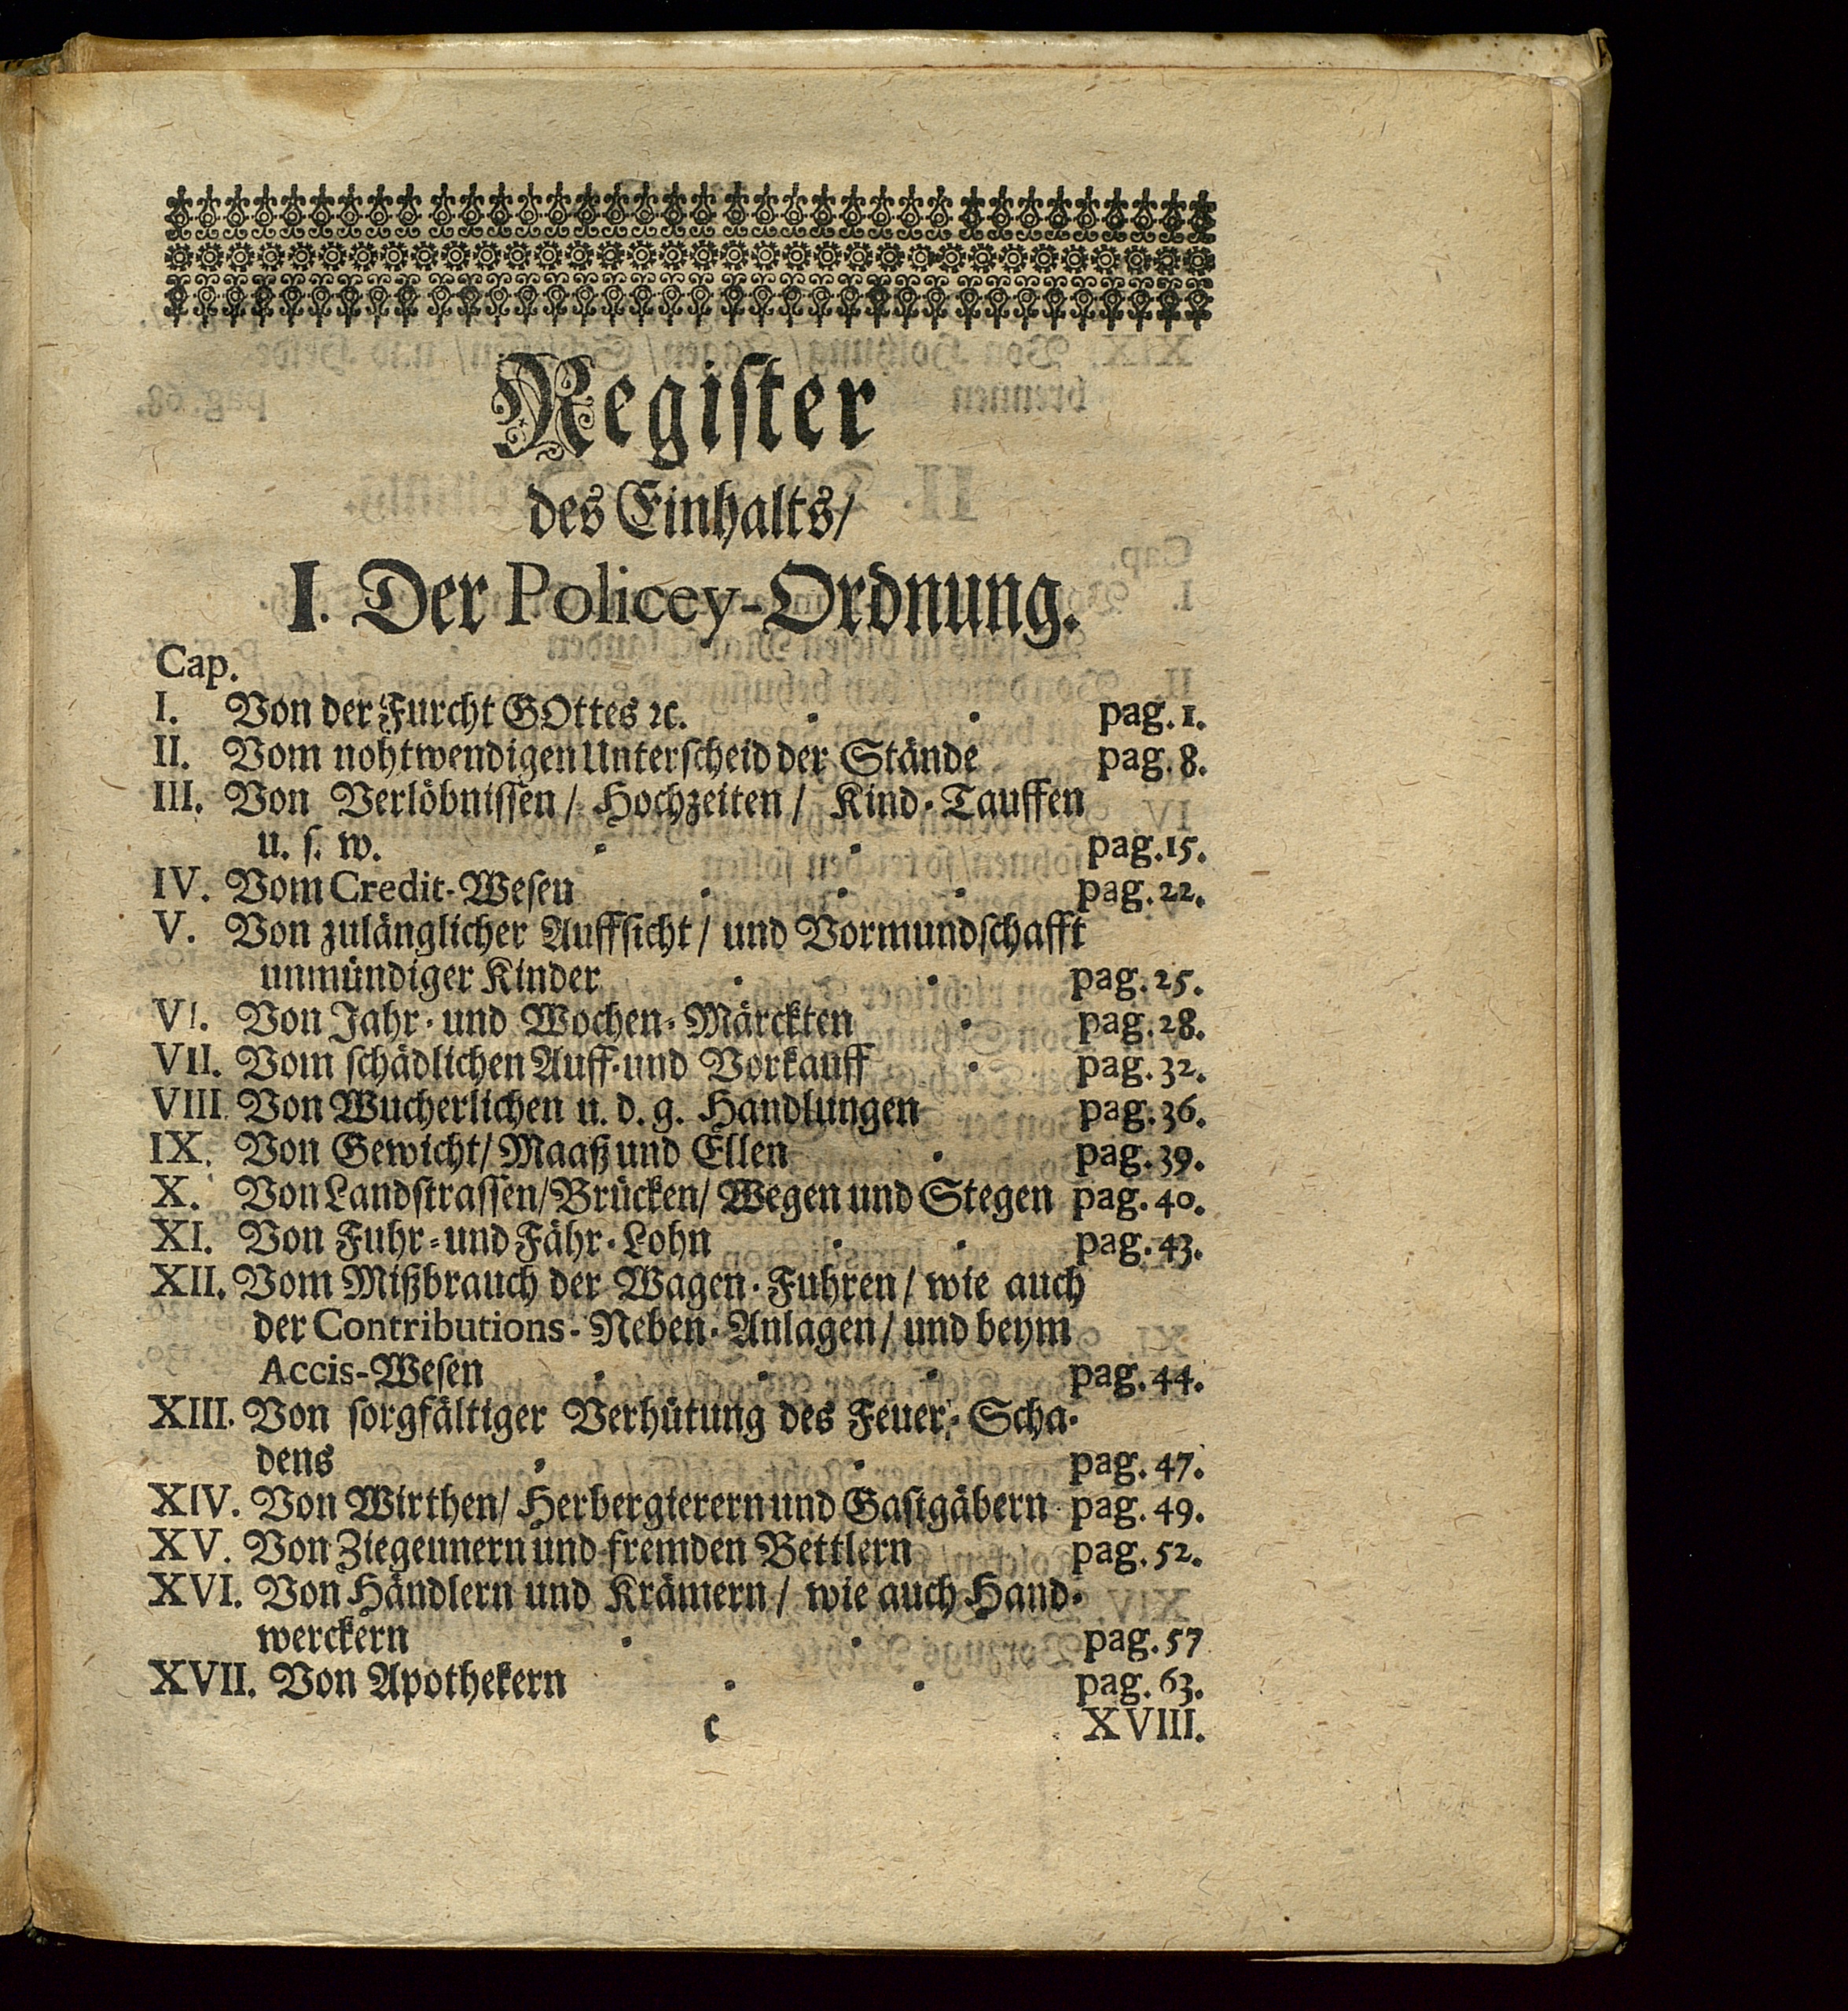 Register
des Einhalts/
I. Der Policey-Ordnung.
Cap.
I. Von der Furcht GOttes ꝛc. pag. 1.
II. Vom nohtwendigen Unterscheid der Stände pag. 8.
III. Von Verlöbnissen / Hochzeiten / Kind-Tauffen
u. s. w. pag. 15.
IV. Vom Credit-Wesen pag. 22.
V. Von zulänglicher Auffsicht / und Vormundschafft
unmündiger Kinder pag. 25.
VI. Von Jahr- und Wochen-Märckten pag. 28.
VII. Vom schädlichen Auff- und Vorkauff pag. 32.
VIII. Von Wucherlichen u. d. g. Handlungen pag. 36.
IX. Von Gewicht/ Maaß und Ellen pag. 39.
X. Von Landstrassen/ Brücken/ Wegen und Stegen pag. 40.
XI. Von Fuhr- und Fähr-Lohn pag. 43.
XII. Vom Mißbrauch der Wagen-Fuhren / wie auch
der Contributions-Neben-Anlagen / und beym
Accis-Wesen pag. 44.
XIII. Von sorgfältiger Verhütung des Feuer-Scha-
dens pag. 47.
XIV. Von Wirthen/ Herbergierern und Gastgäbern pag. 49.
XV. Von Ziegeunern und fremden Bettlern pag. 52.
XVI. Von Händlern und Krämern / wie auch Hand-
werckern pag. 57
XVII. Von Apothekern pag. 63.
c XVIII.